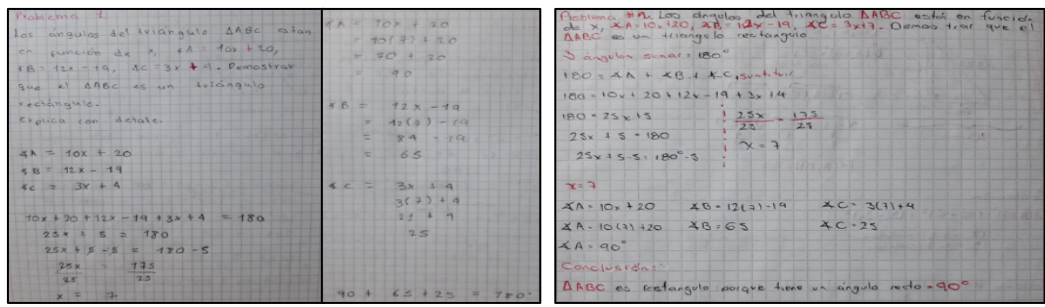 Problema 1
Los ángulos del triángulo ΔABC estan
en función de x, ∡A = 10x + 20,
∡B = 12x - 19, ∡C = 3x + 4. Demostrar
que el ΔABC es un triángulo
rectángulo.
Explica con detalle.
∡A = 10x + 20
∡B = 12x - 19
∡C = 3x + 4
10x + 20 + 12x - 19 + 3x + 4 = 180
25x + 5 = 180
25x + 5 - 5 = 180 - 5
25x = 175
25 25
x = 7
∡A = 10x + 20
= 10(7) + 20
= 70 + 20
= 90
∡B = 12x - 19
= 12(7) - 19
= 84 - 19
= 65
∡C = 3x + 4
3(7) + 4
21 + 4
25
90 + 65 + 25 = 180°
Problema #1. Los ángulos del triangulo ΔABC estás en función
de x, ∡A = 10x + 20, ∡B = 12x - 19, ∡C = 3x + 4. Demostrar que el
ΔABC es un triangulo rectangulo
3 ángulos suman = 180°
180 = ∡A + ∡B + ∡C, sustituir
180 = 10x + 20 + 12x - 19 + 3x + 4
180 = 25x + 5
25x + 5 = 180
25x + 5 - 5 = 180° - 5
25x = 175
25 25
x = 7
x = 7
∡A = 10x + 20 ∡B = 12(7) - 19 ∡C = 3(7) + 4
∡A = 10(7) + 20 ∡B = 65 ∡C = 25
∡A = 90°
Conclusión:
ΔABC es rectangulo porque tiene un ángulo recto = 90°